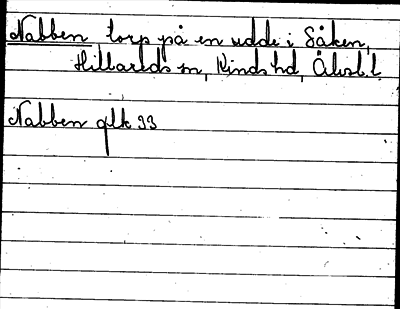 Nabben, torp på en udde i Såken,
Hillareds sn, Kinds hd, Älvsb. l.
Nabben glk 93